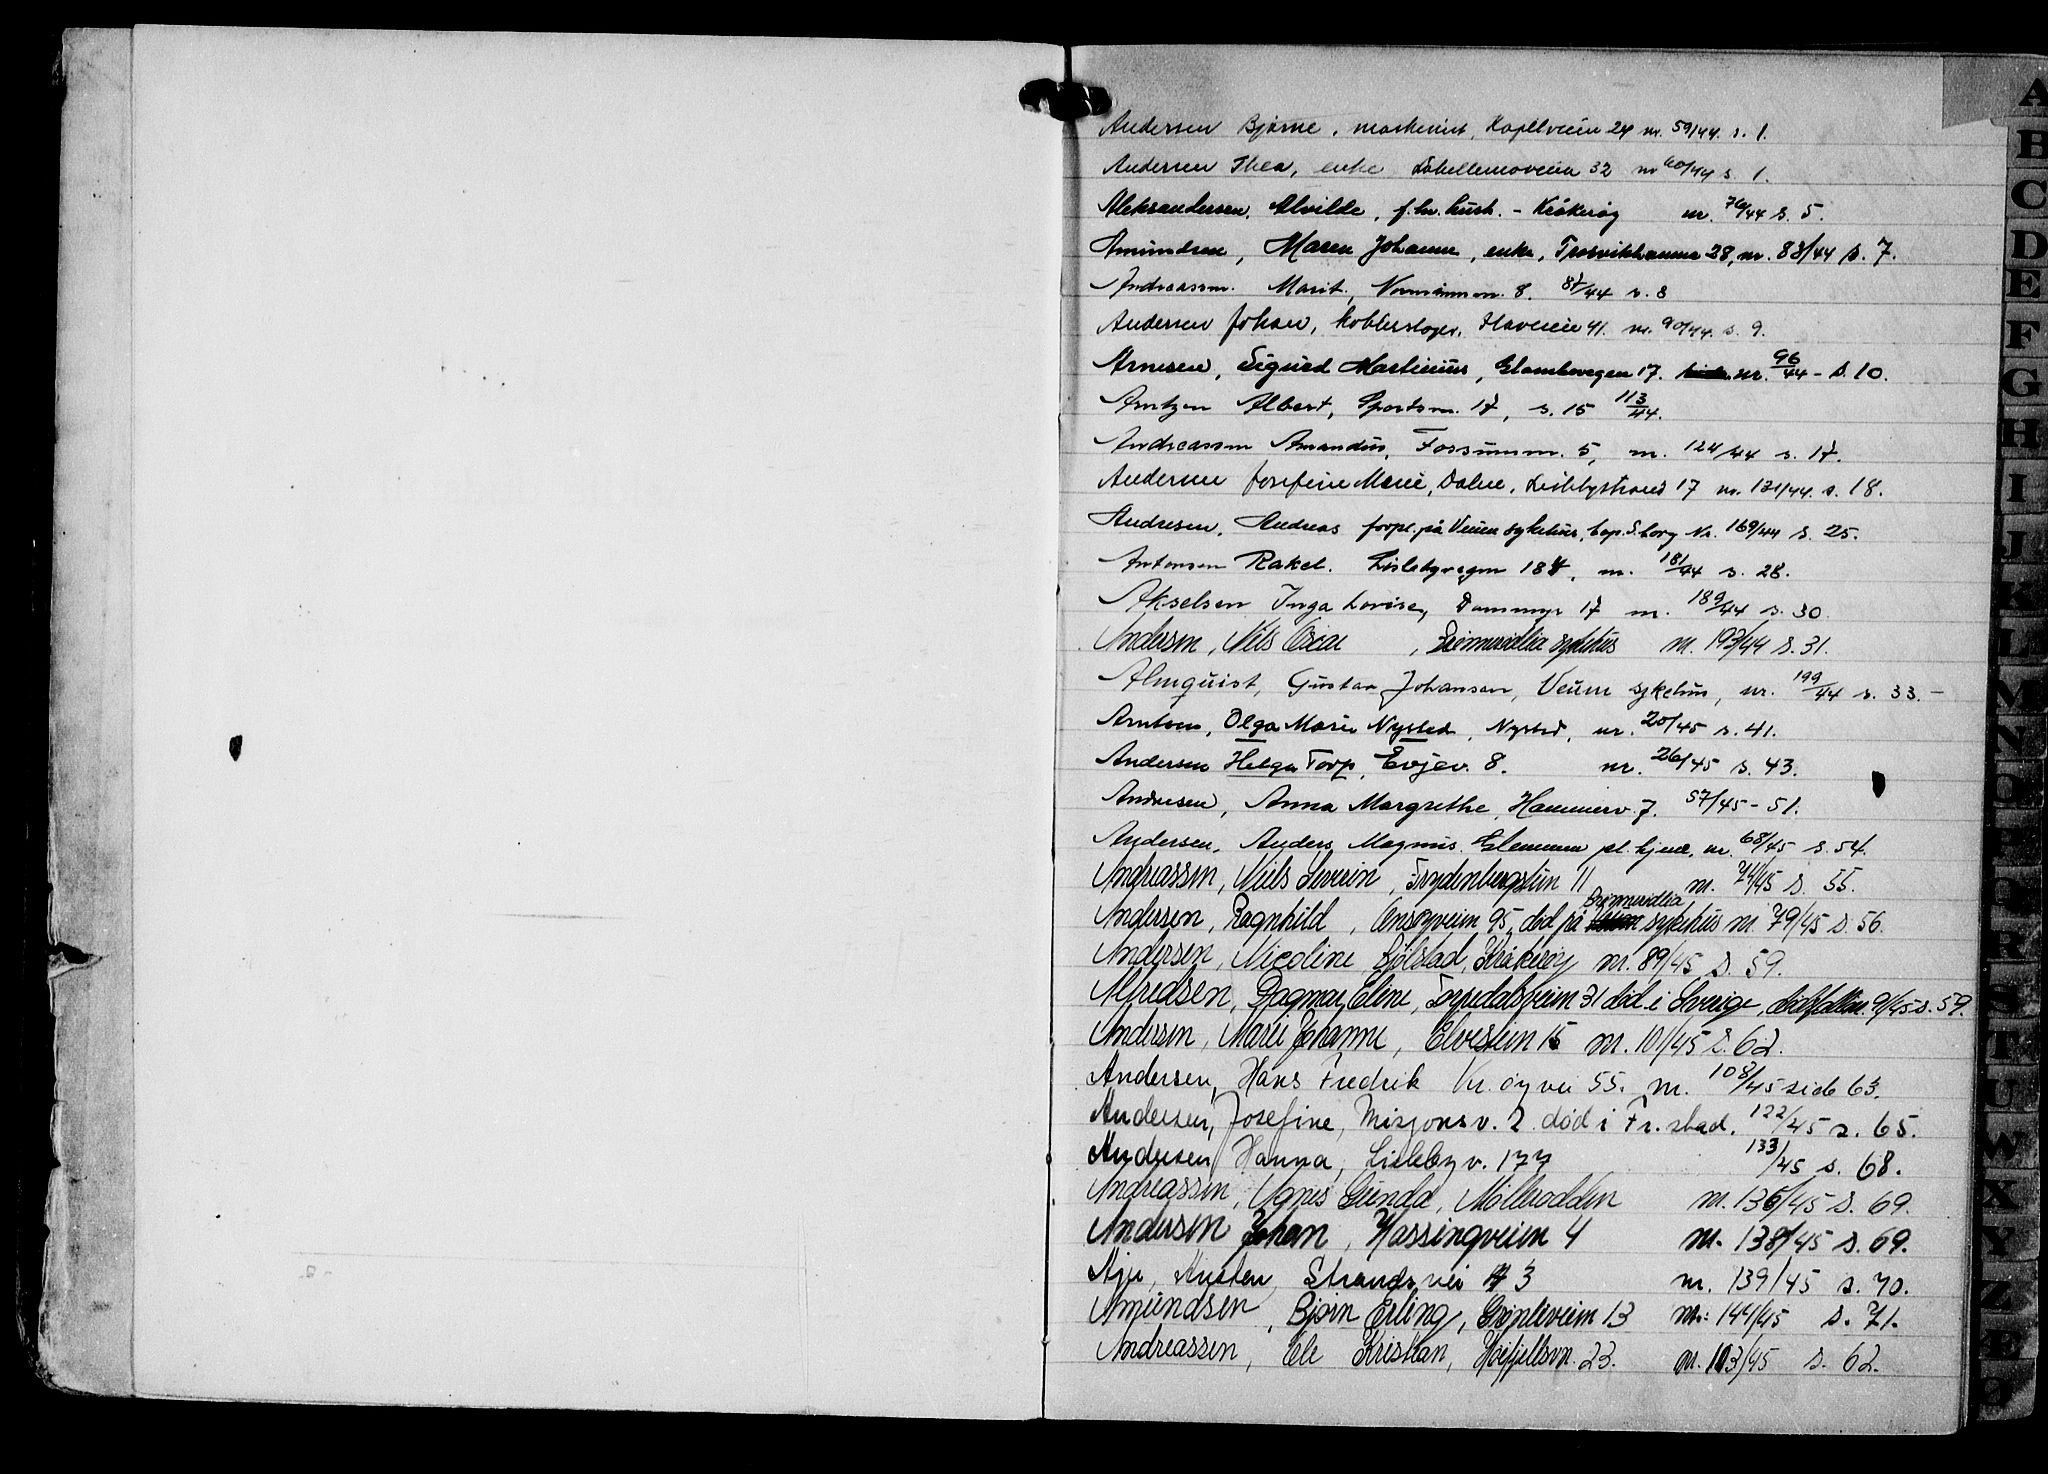 Andersen Bjarne, maskinist, Kapellveien 24 nr. 59/44. s. 1.
Andersen Thea, enke Labellemoveien 32 nr 60/44 s. 1.
Aleksandersen, Alvilde, f.hv. hush. - Kråkerøy nr. 76/44 s. 5.
Amundsen, Maren Johanne, enke, Trosvikhavna 28, nr. 83/44 s. 7.
Andreassen. Marit, 8. 87/44 s. 8
Andersen Johan, kobberslager, Haveveien 41. nr. 90/44. s. 9.
Arnesen, Sigurd Martinius, Glombovegen 17. nr. 96/44 - s. 10.
Arntzen Albert, Sportsv. 17, s. 15 113/44.
Andreassen Amandus, Fossumsv. 5, nr. 124/44 s. 17.
Andersen Josefine Marie, Dalene, Leiebystrand 17 nr. 131/44. s. 18.
Andresen, Andreas forpl. på Veum sykehus, bop. S.borg Nr. 169/44 s. 25.
Antonsen Rakel. Lislebyvegen 184, nr. 181/44 s. 28.
Akselsen Inga Lovise, Dammyr 17 nr. 189/44 s. 30.
Andersen, Nils Oscar, sykehus nr. 193/44 s. 31.
Almquist, Gustav Johansen, Veum sykehus, nr. 199/44 s. 33.-
Arntsen, Olga Marie Nysted, Nysted, nr. 20/45 s. 41.
Andersen Helga Torp, Evjev. 8. nr. 26/45 s. 43.
Andresen, Anna Margrethe, Hammerv. 7. 57/45 - 51.
Andersen, Anders Magnus. Glemmen pl.hjem, nr. 68/45 s. 54.
Andreassen, Niels Severin, Frydenbergstien 11 nr. 74/45 s. 55.
Andersen, Ragnhild, Onsøyveien 95, død på sykehus nr. 79/45 s. 56.
Andersen, Nicoline Bjølstad, Kråkerøy nr. 89/45 s. 59.
Alfredsen, Dagmar Eline, Torpedalsveien 31 død i Sverige, 91/45 s. 59.
Andersen, Marie Johanne, Elvestien 15 nr. 101/45 s. 62.
Andersen, Hans Fredrik Kr.øy vei 55. nr. 108/45 side 63.
Andersen, Josefine, Misjonsv. 2. død i Fr.stad. 122/45 s. 65.
Andresen Hanna, Lisleby v. 177 133/45 s. 68.
Andreassen, Agnes Gunda, Mølleodden nr. 136/45 s. 69.
Andersen Johan, Hassingveien 4 nr. 138/45 s. 69.
Aje, Kirsten Strandvei 3 nr. 139/45 s. 70.
Amundsen, Bjørn Erling, Gripleveien 13 nr: 144/45 s. 71.
Andreassen, Ole Kristian, Høifjellsvn. 23. nr. 103/45 s. 62.
A
B
C
D
E
F
G
H
I
J
K
L
M
N
O
P
Q
R
S
T
U
W
X
Y
Z
Æ
Ø